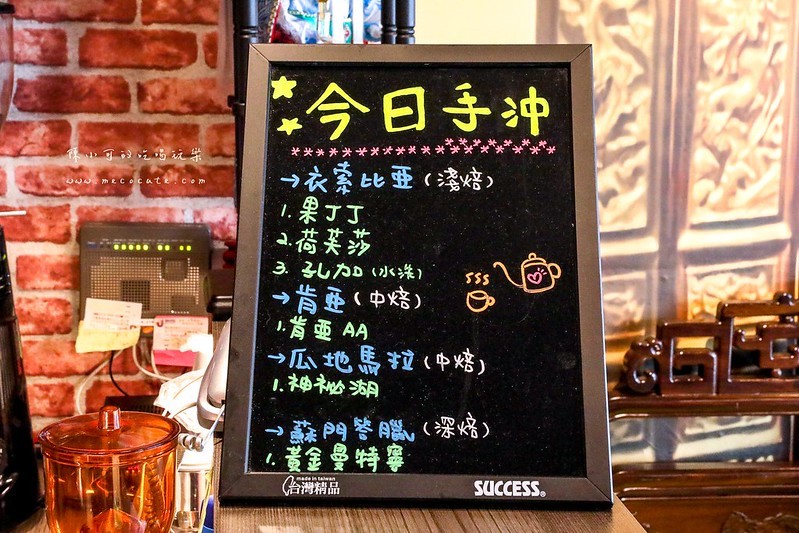 今日手沖
→衣索比亞(淺焙)
1.果丁丁
2.荷芙莎
3.孔加(水洗)
→肯亞(中焙)
1.肯亞AA
→瓜地馬拉(中焙)
1.神祕湖
→蘇門答臘(深焙)
1.黃金曼特寧
made in taiwan
台灣精品
SUCCESS®
www.mecocute.com